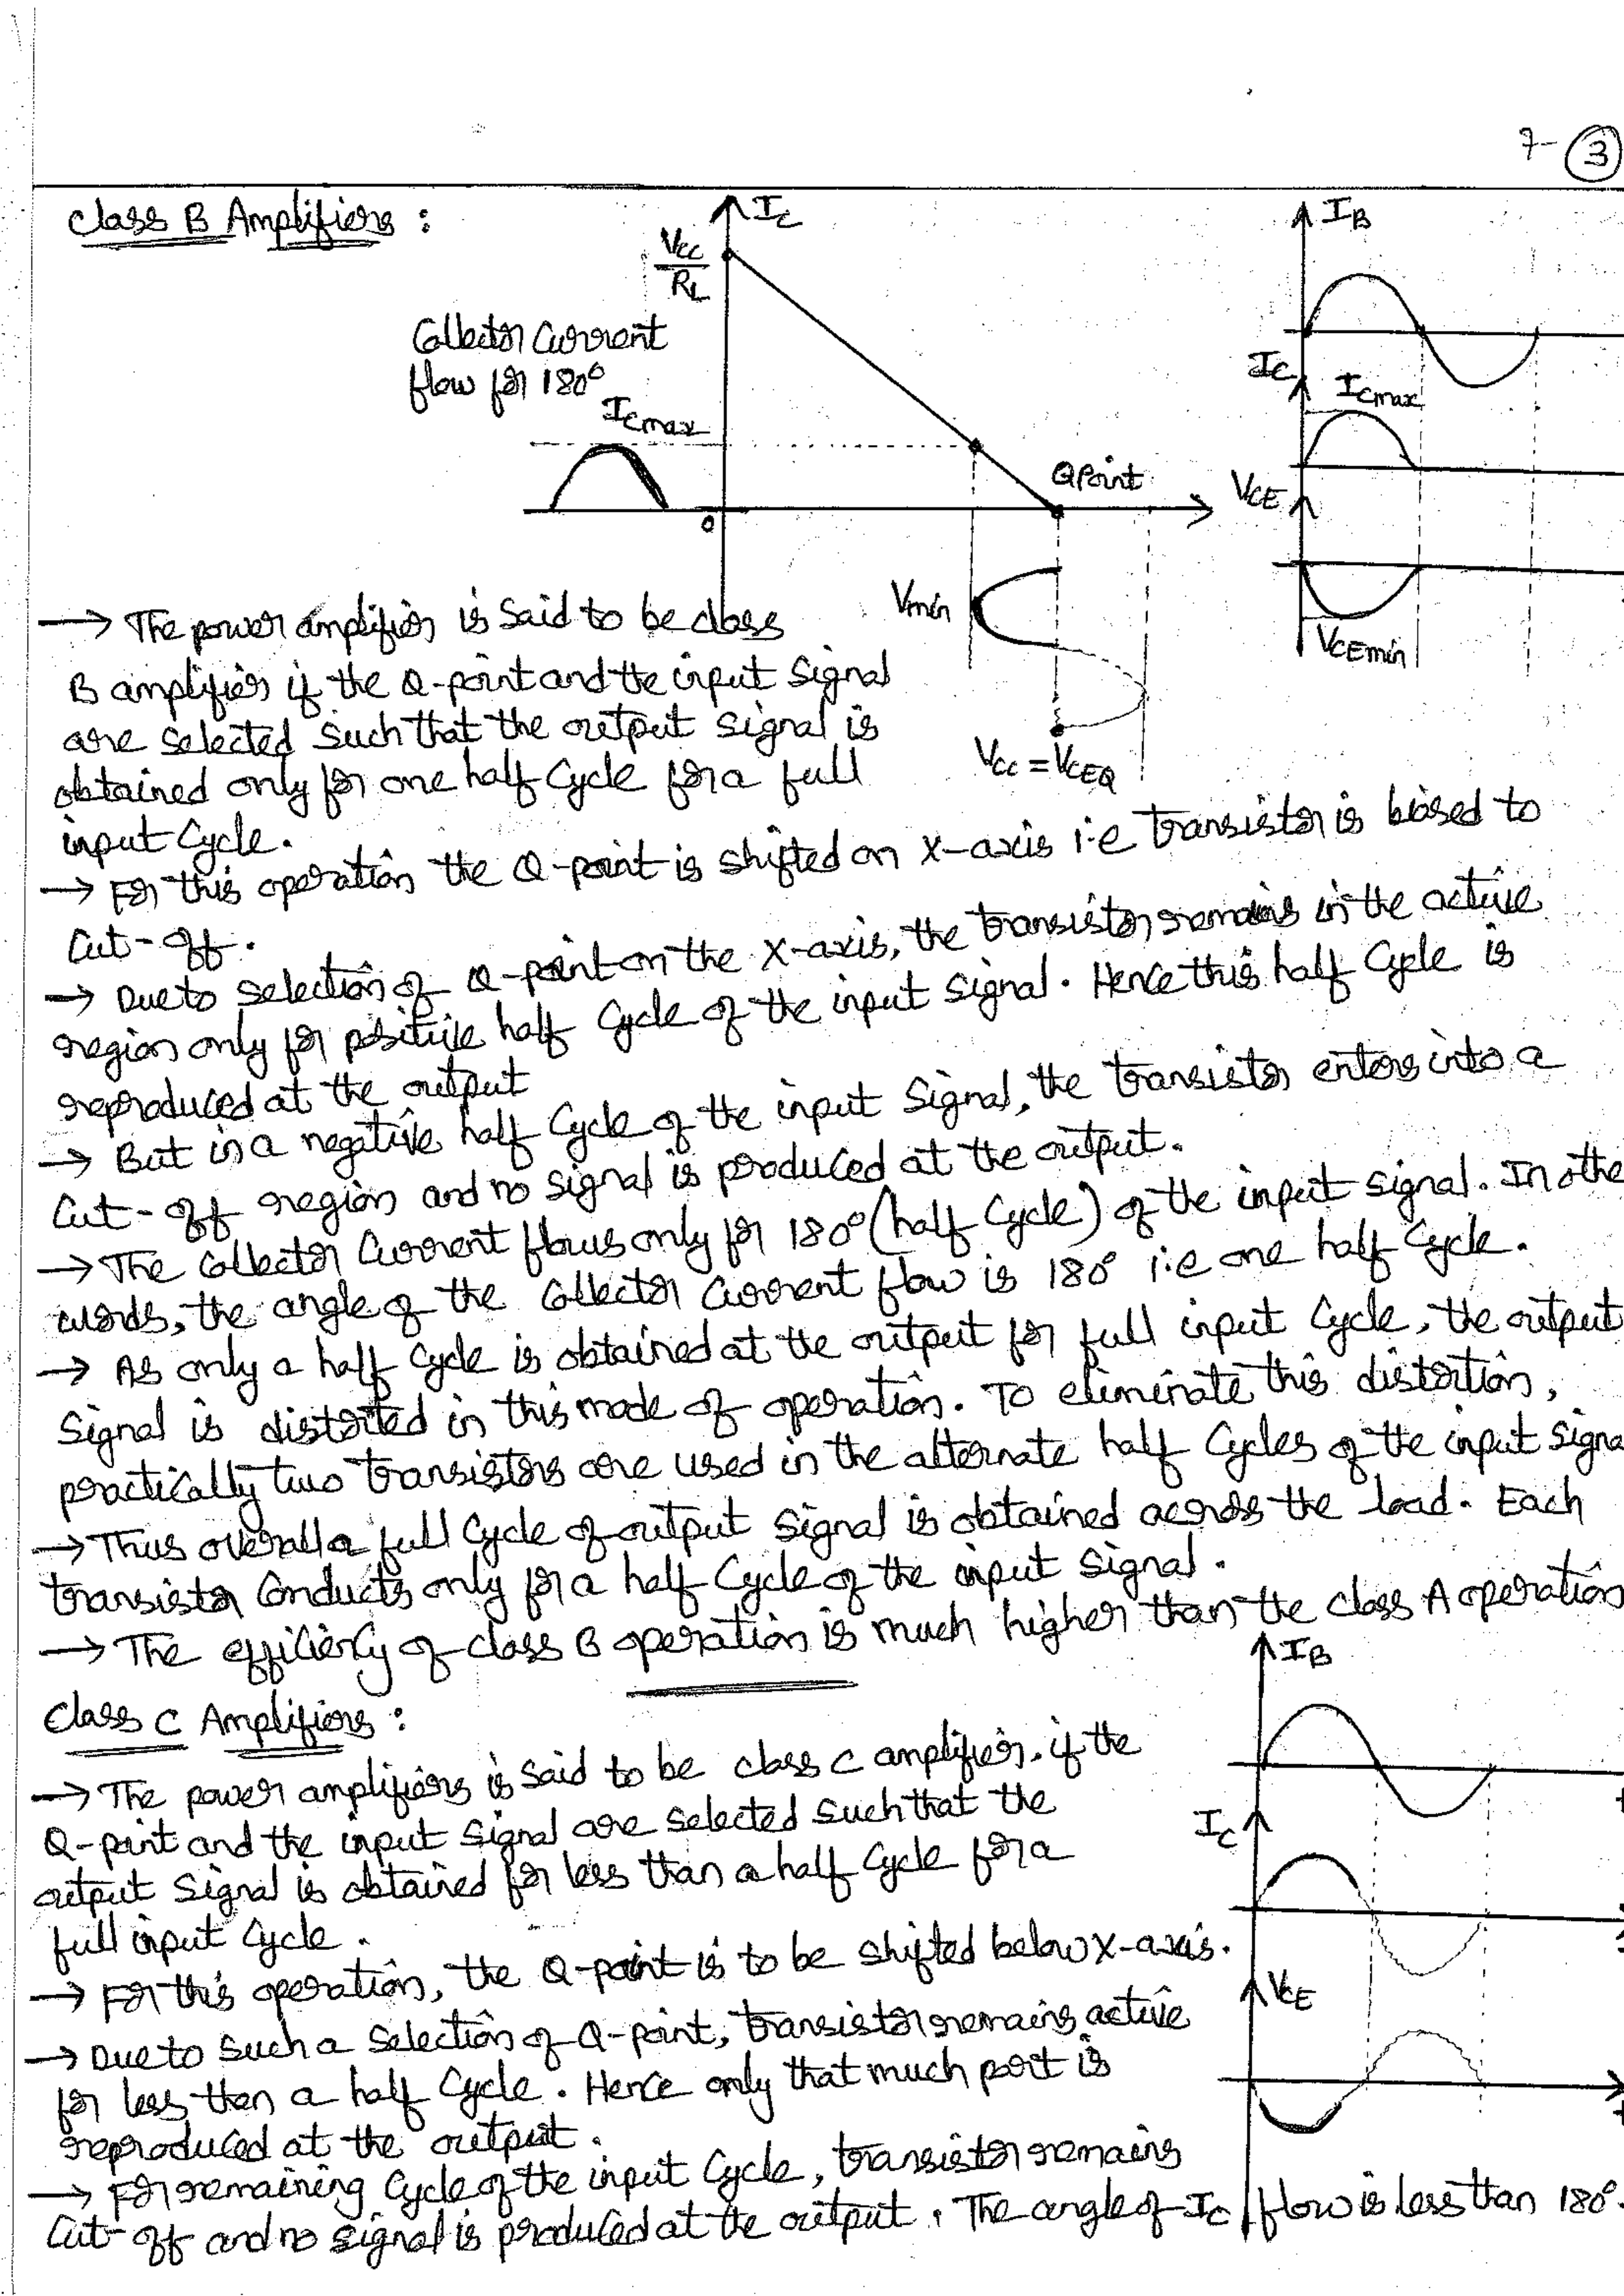 7-3
Class B Amplifiers :
IC
VCC/RL
Collector Current
flow for 180°
ICmax
0
Q Point
Vmin
VCC = VCEQ
IB
IC
ICmax
VCE
VCEmin
→ The power amplifier is said to be class
B amplifier if the Q-point and the input signal
are selected such that the output signal is
obtained only for one half cycle for a full
input cycle.
→ For this operation the Q-point is shifted on X-axis i.e transistor is biased to
Cut-off.
→ Due to selection of Q-point on the X-axis, the transistor remains in the active
region only for positive half cycle of the input signal. Hence this half cycle is
reproduced at the output
→ But in a negative half cycle of the input signal, the transistor enters into a
Cut-off region and no signal is produced at the output.
→ The collector current flows only for 180° (half cycle) of the input signal. In othe
words, the angle of the collector current flow is 180° i.e one half cycle.
→ As only a half cycle is obtained at the output for full input cycle, the output
signal is distorted in this mode of operation. To eliminate this distortion,
practically two transistors are used in the alternate half cycles of the input signa
→ Thus overall a full cycle of output signal is obtained across the load. Each
transistor conducts only for a half cycle of the input signal.
→ The efficiency of class B operation is much higher than the class A operation
Class C Amplifiers :
→ The power amplifiers is said to be class C amplifier, if the
Q-point and the input signal are selected such that the
output signal is obtained for less than a half cycle for a
full input cycle.
→ For this operation, the Q-point is to be shifted below X-axis.
→ Due to such a selection of Q-point, transistor remains active
for less than a half cycle. Hence only that much part is
reproduced at the output.
→ For remaining cycle of the input cycle, transistor remains
Cut-off and no signal is produced at the output. The angle of IC flow is less than 180°.
IB
IC
VCE